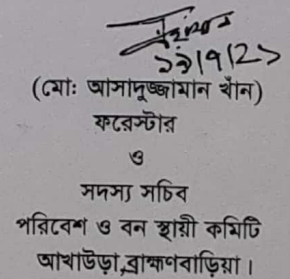 ২১।৭।২১
(মোঃ আসাদুজ্জামান খাঁন)
ফরেস্টার
ও
সদস্য সচিব
পরিবেশ ও বন স্থায়ী কমিটি
আখাউড়া,ব্রাহ্মণবাড়িয়া।